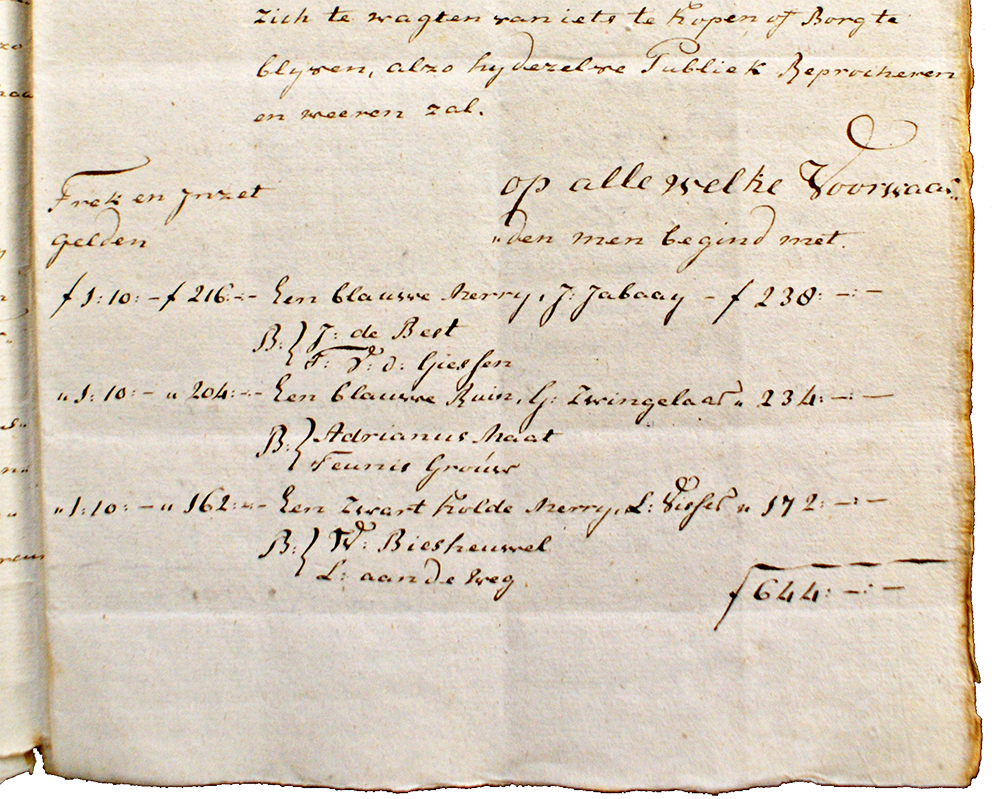 zich te wagten van iets te Kopen of Borg te
blyven, alzo hy dezelve Publiek Reprocheren
en weeren zal.
Trek en Jnzet
gelden
op alle welke Voorwaar„
„den men begind met.
f 1:10:– f 216:–:– Een blauwe Merry, J: Jabaay – f 238:–:–
B: } J: de Best
T: V: d: Giessen
„ 1:10:– „ 204:–:– Een blauwe Ruin, G: Zwingelaar „ 234:–:–
B: } Adrianus Maat
Teunis Groúw
„ 1:10:– „ 162:–:– Een Zwart Kolde Merry, L: Visser „ 172:–:–
B: } W: Biesheuwel
L: aan de Weg
f 644:–:–